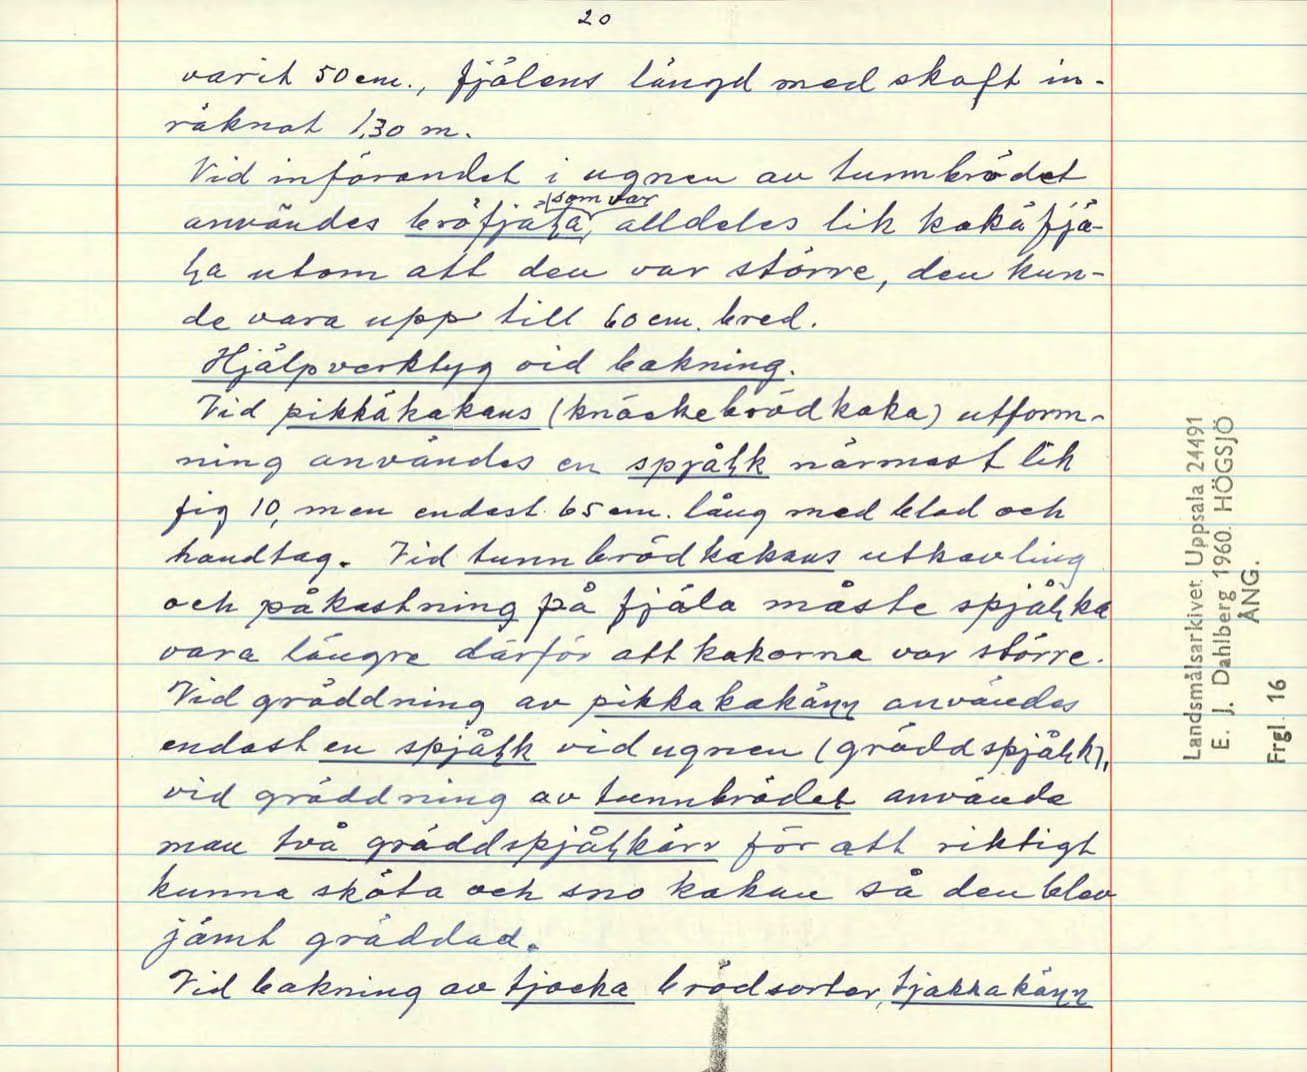 20
varit 50 cm., fjälens längd med skaft in-
räknat 1,30 m.
Vid införandet i ugnen av tunnbrödet
som var
användes bröfjäɽa, alldeles lik kakäfjä-
ɽa utom att den var större, den kun-
de vara upp till 60 cm. bred.
Hjälpverktyg vid bakning.
Vid pikkäkakans (knäckebrödkaka) utform-
ning användes en spjåɽk närmast lik
fig 10, men endast 65 cm. lång med blad och
handtag. Vid tunnbrödkakans utkavling
och påkastning på fjäla måste spjåɽka
vara längre därför att kakorna var större.
Vid gräddning av pikkakakäɳɳ användes
endast en spjåɽk vid ugnen (gräddspjåɽk),
vid gräddning av tunnbrödet använde
man två gräddspjåɽkärr för att riktigt
kunna sköta och sno kakan så den blev
jämt gräddad.
Vid bakning av tjocka brödsorter, tjakkakäɳɳ
Landsmålsarkivet Uppsala 24491
E. J. Dahlberg 1960. HÖGSJÖ
ÅNG.
Frgl. 16